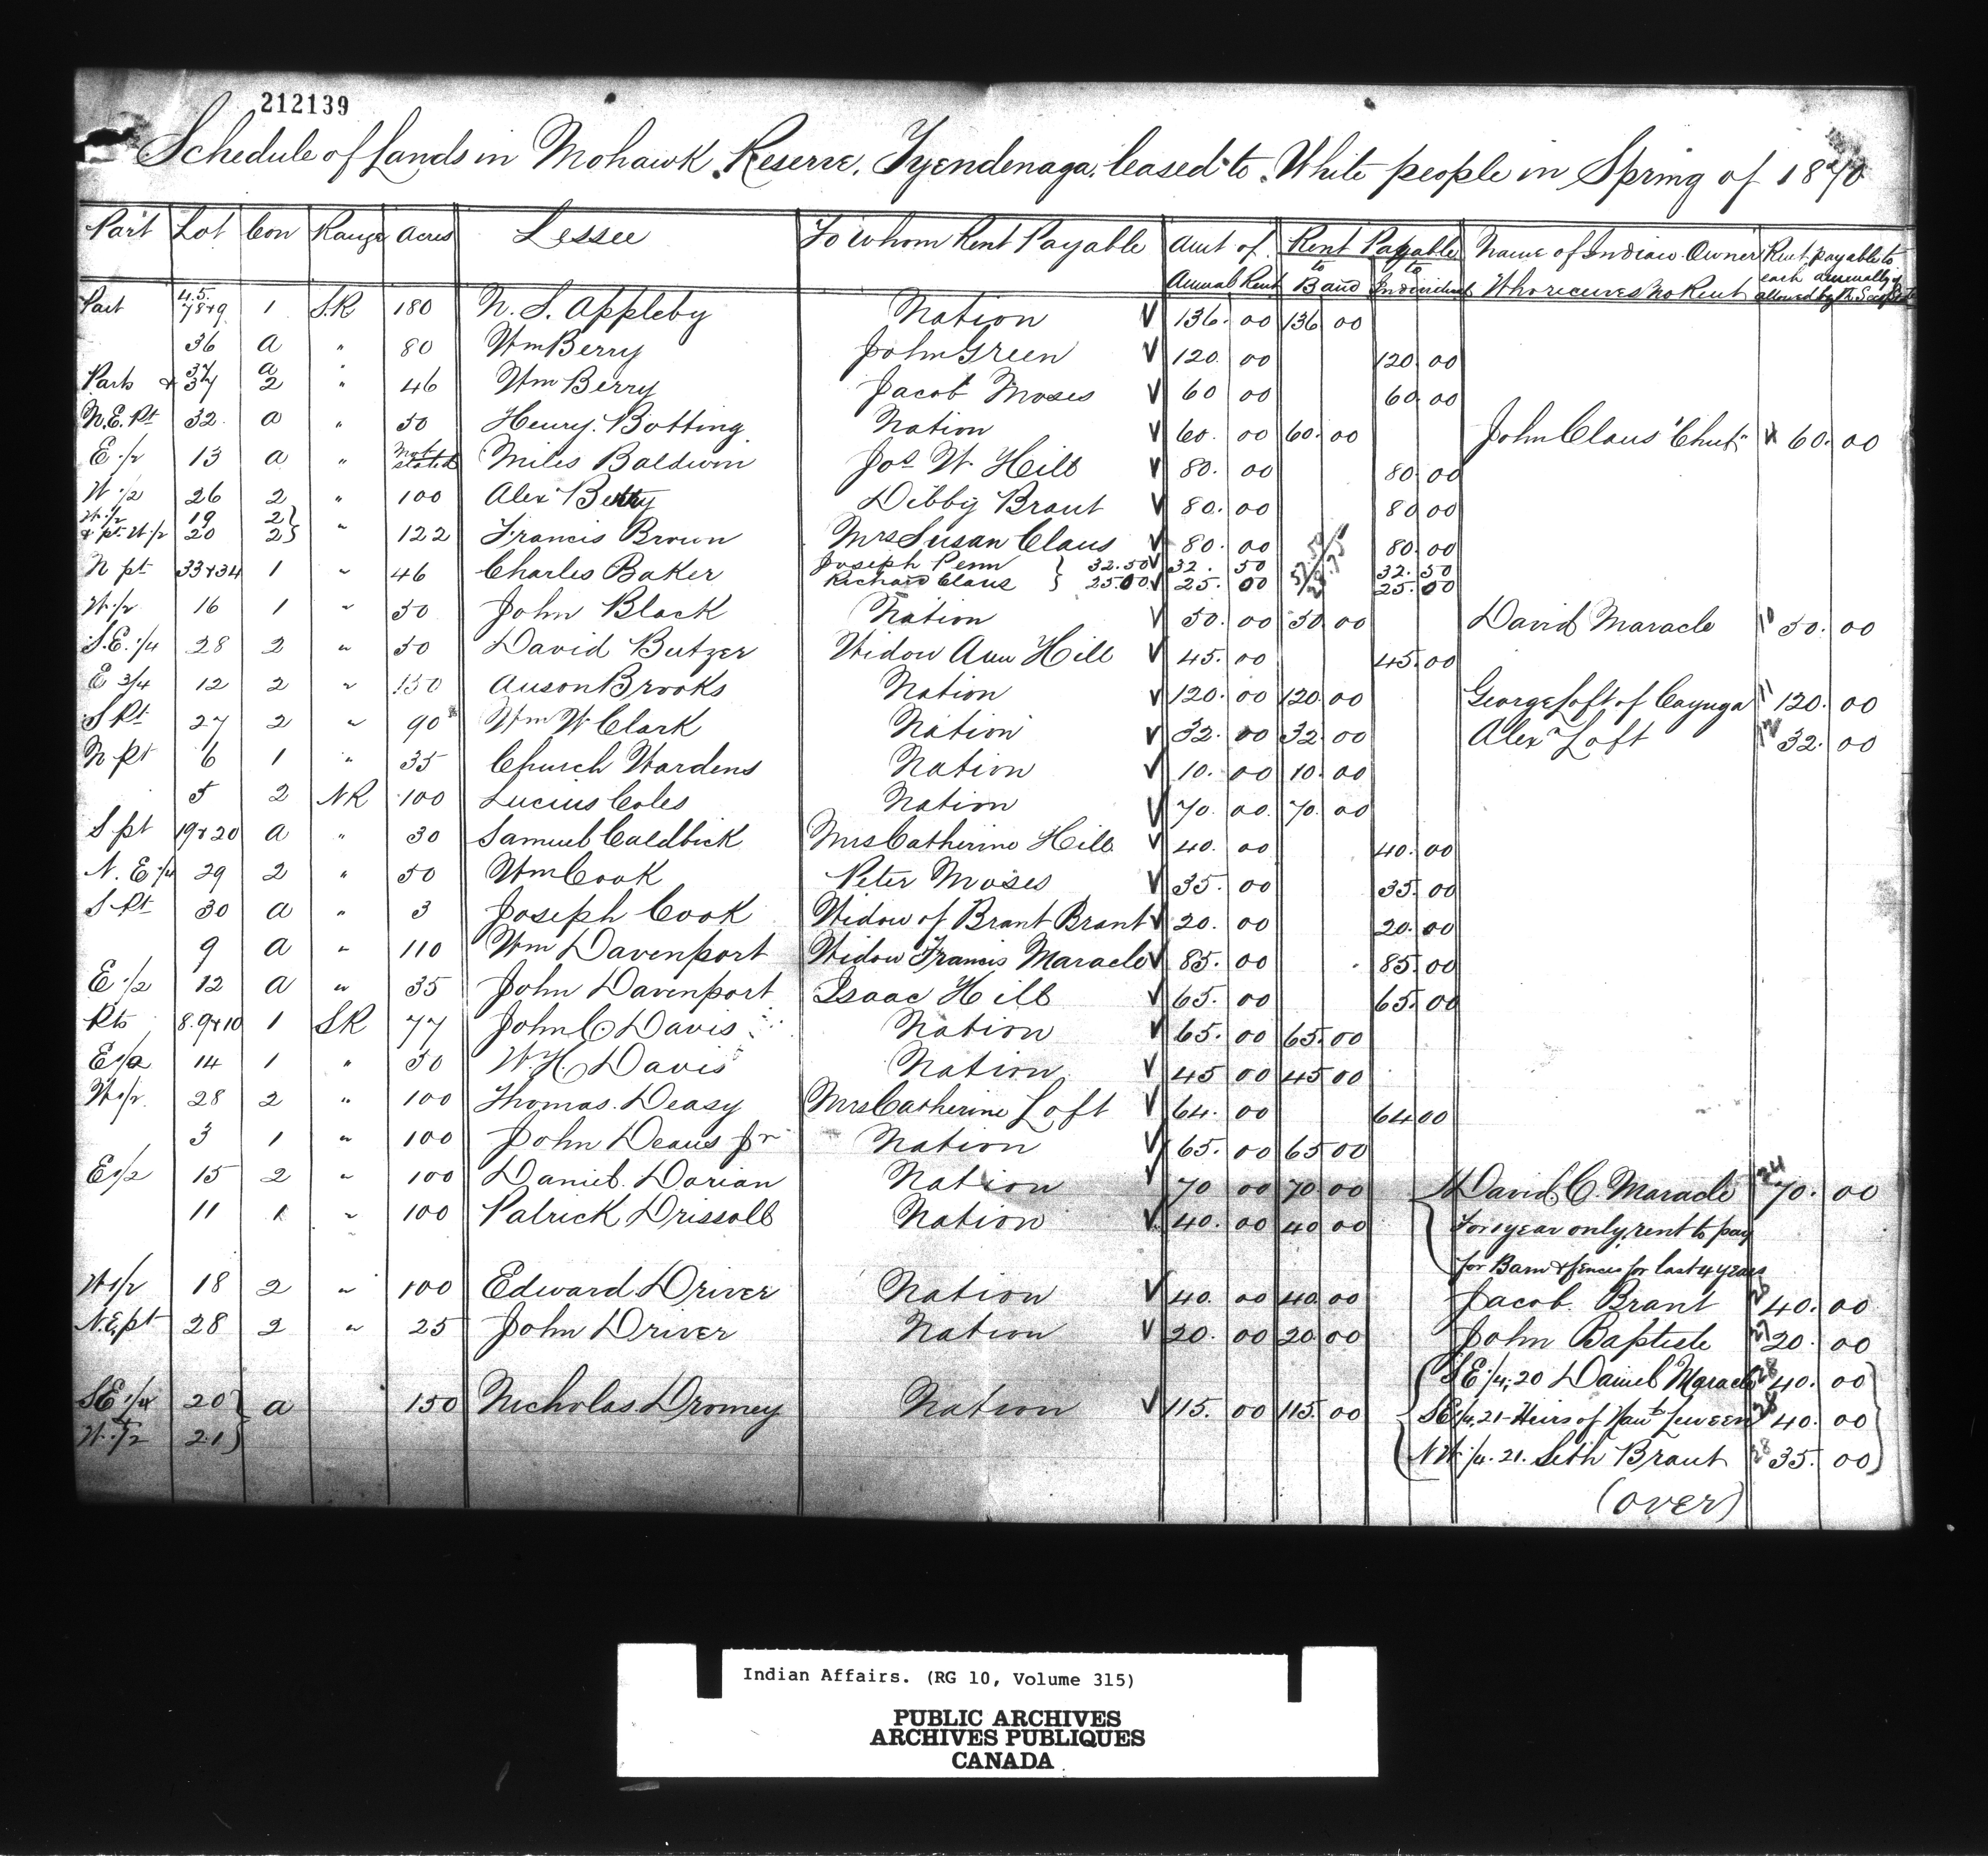 212139
Schedule of Lands in Mohawk Reserve, Tyendenaga, leased to White people in Spring of 1870
Part Lot Con Range Acres Lessee To Whom Rent Payable Amt of Annual Rent Rent Payable to Band to Individual Name of Indian Owner Who receives No Rent Rent payable to each annually if allowed by the
Part 4.5. 7 8+9 1 S.R 180 N. S. Appleby Nation V 136. 00 136 00
36 a " 80 Wm Berry John Green V 120 00 120 00
Parts 37 a & 37 2 " 46 Wm Berry Jacob Moses V 60 00 60 00
N.E. Pt 32 a " 50 Henry Botting Nation V 60. 00 60. 00 John Claus "Chut" 60. 00
E 1/2 13 a " Not stated Miles Baldwin Jos W. Hill V 80. 00 80. 00
W 1/2 26 2 " 100 Alex Dibby Brant V 80. 00 80 00
W. 1/2 19 2 } & pt W 1/2 20 2 } " 122 Francis Brown Mrs Susan Claus V 80. 00 80. 00
N pt 33+34 1 " 46 Charles Baker Joseph Penn } 32.50 V 32. 50 32. 50
Richard Claus } 25.00 V 25. 00 25. 00
W. 1/2 16 1 " 50 John Black Nation V 50. 00 50 00 David Maracle 10 50. 00
S.E. 1/4 28 2 " 50 David Butzer Widow Ann Hill V 45. 00 45. 00
E 3/4 12 2 " 150 Anson Brooks Nation V 120. 00 120. 00 George Loft of Cayuga 11 120. 00
S Pt 27 2 " 90 Wm W Clark Nation V 32. 00 32 00 Alex Loft 12 32. 00
N Pt 6 1 " 35 Church Wardens Nation V 10. 00 10. 00
5 2 NR 100 Lucius Coles Nation V 70. 00. 70. 00
S pt 19+20 a " 30 Samuel Caldbick Mrs Catherine Hill V 40. 00 40. 00
N. E 1/4 29 2 " 50 Wm Cook Peter Moses V 35. 00 35. 00
S Pt 30 a " 3 Joseph Cook Widow of Brant Brant V 20. 00 20. 00
9 a " 110 Wm Davenport Widow Francis Maracle V 85. 00 85. 00
E 1/2 12 a " 35 John Davenport Isaac Hill V 65. 00 65. 00
Pts 8. 9+10 1 SR 77 John C. Davis Nation V 65. 00 65. 00
E 1/2 14 1 " 50 W. H. Davis Nation V 45 00 45 00
W 1/2 28 2 " 100 Thomas Deasy Mrs Catherine Loft V 64. 00 64 00
3 1 " 100 John Deans Jr Nation V 65. 00 65 00
E 1/2 15 2 " 100 Daniel Dorian Nation V 70 00 70 00 David C. Maracle 24 70. 00
11 1 " 100 Patrick Drissoll Nation V 40. 00 40 00 For 1 year only, rent to pay
for Barn & fences for last 4 years
W 1/2 18 2 " 100 Edward Driver Nation V 40. 00 40 00 Jacob Brant 40. 00
N.E, pt 28 2 " 25 John Driver Nation V 20. 00 20 00 John Baptiste 27 20. 00
SE 1/4, 20 Daniel Maracle 28 40. 00
SE 1/4 20 } a 150 Nicholas Dromey Nation V 115. 00 115. 00 SE 1/4, 21 - Heirs of 28 40. 00
W. 1/2 21 } NW 1/4. 21. Seth Brant 28 35. 00
(over)
Indian Affairs. (RG 10, Volume 315)
PUBLIC ARCHIVES
ARCHIVES PUBLIQUES
CANADA